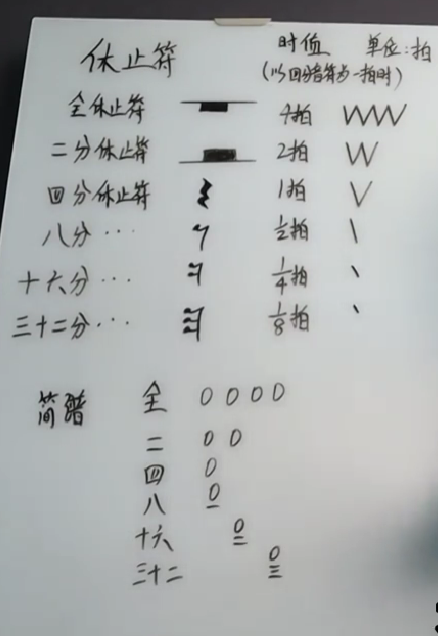 休止符 时值 单位:拍
(以四分音符为一拍时)
全休止符 4拍
二分休止符 2拍
四分休止符 1拍
八分··· 1/2拍
十六分··· 1/4拍
三十二分··· 1/8拍
简谱 全 0 0 0 0
二 0 0
四 0
八 0
十六 0
三十二 0